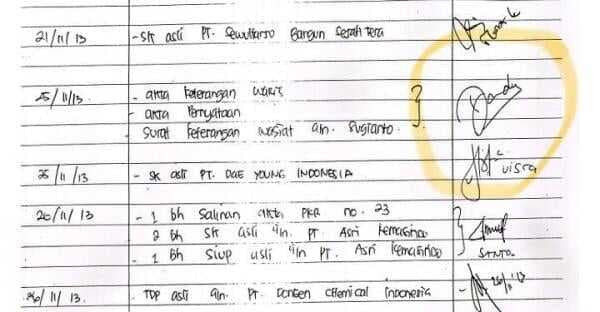 21/11/13 - SK asli PT. Sewuttarto Bangun Serah Tera
25/11/13. - akta keterangan waris
- akta Pernyataan
Surat keterangan wasiat an. Sugianto.
25/11/13 - SK asli PT. DAE YOUNG INDONESIA VISCA
26/11/13 - 1 bh Salinan akta PKR no. 23
2 bh SK asli a/n. PT. Asri Kemasindo
- 1 bh Siup asli a/n PT. Asri Kemasindo SANTO.
26/11/13. - TDP asli a/n. PT. DONGEN Chemical Indonesia - 26/11 '13